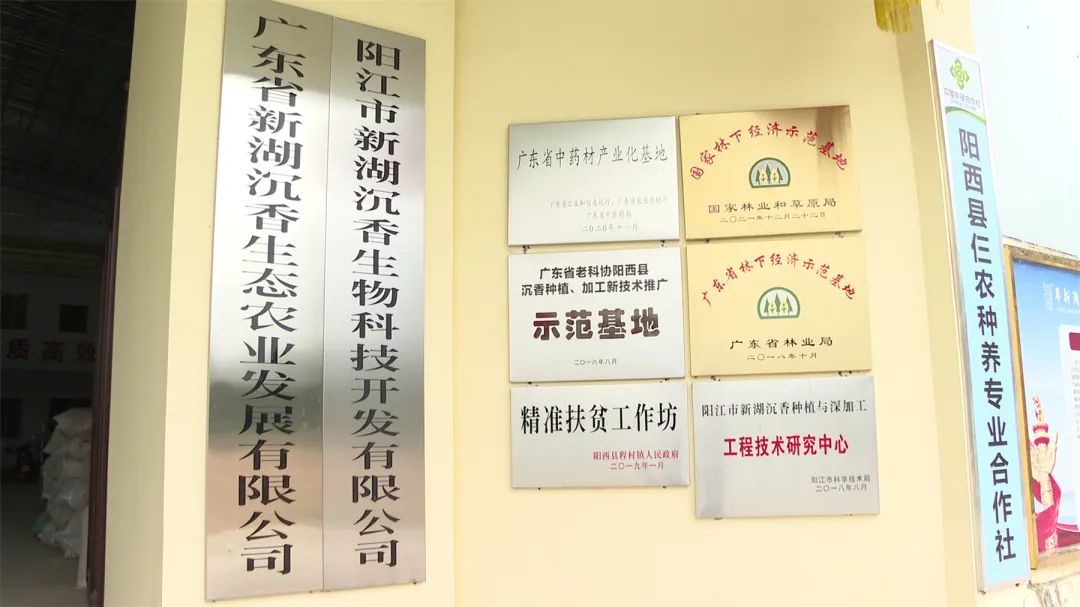 广东省新湖沉香生态农业发展有限公司
阳江市新湖沉香生物科技开发有限公司
广东省中药材产业化基地
广东省中医药局
二〇二〇年十一月
国家林下经济示范基地
国家林业和草原局
二〇二一年十二月二十二日
广东省老科协阳西县
沉香种植、加工新技术推广
示范基地
二〇一六年八月
广东省林下经济示范基地
广东省林业局
二〇一八年十月
精准扶贫工作坊
阳西县程村镇人民政府
二〇一九年一月
阳江市新湖沉香种植与深加工
工程技术研究中心
阳江市科学技术局
二〇一八年八月
阳西县仨农种养专业合作社
质高效